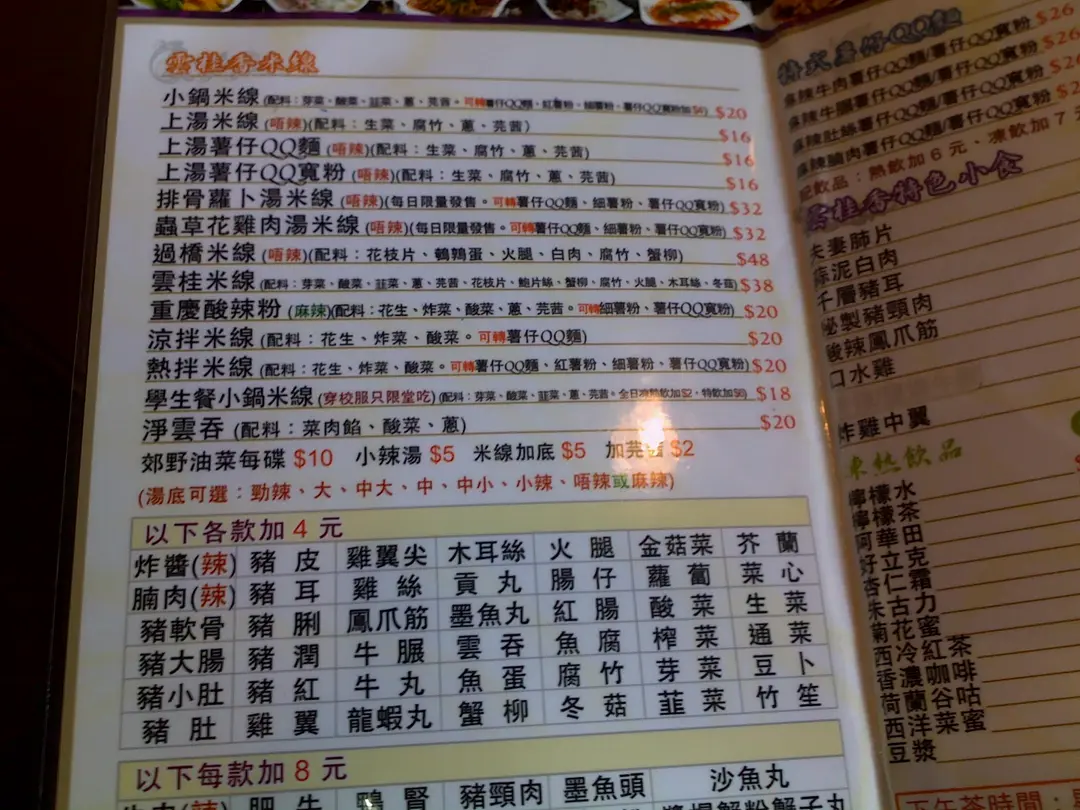 雲桂香米線
小鍋米線 (配料：芽菜、酸菜、韮菜、蔥、芫茜。可轉薯仔QQ麵、紅薯粉、細薯粉、薯仔QQ寬粉加$4) $20
上湯米線 (唔辣)(配料：生菜、腐竹、蔥、芫茜) $16
上湯薯仔QQ麵 (唔辣)(配料：生菜、腐竹、蔥、芫茜) $16
上湯薯仔QQ寬粉 (唔辣)(配料：生菜、腐竹、蔥、芫茜) $16
排骨蘿卜湯米線 (唔辣)(每日限量發售。可轉薯仔QQ麵、細薯粉、薯仔QQ寬粉) $32
蟲草花雞肉湯米線 (唔辣)(每日限量發售。可轉薯仔QQ麵、細薯粉、薯仔QQ寬粉) $32
過橋米線 (唔辣)(配料：花枝片、鵪鶉蛋、火腿、白肉、腐竹、蟹柳) $48
雲桂米線 (配料：芽菜、酸菜、韮菜、蔥、芫茜、花枝片、鮑片絲、蟹柳、腐竹、火腿、木耳絲、冬菇) $38
重慶酸辣粉 (麻辣)(配料：花生、炸菜、酸菜、蔥、芫茜。可轉細薯粉、薯仔QQ寬粉) $20
涼拌米線 (配料：花生、炸菜、酸菜。可轉薯仔QQ麵) $20
熱拌米線 (配料：花生、炸菜、酸菜。可轉薯仔QQ麵、紅薯粉、細薯粉、薯仔QQ寬粉) $20
學生餐小鍋米線 (穿校服只限堂吃) (配料：芽菜、酸菜、韮菜、蔥、芫茜。全日凍熱飲加$2，特飲加$6) $18
淨雲吞 (配料：菜肉餡、酸菜、蔥) $20
郊野油菜每碟 $10 小辣湯 $5 米線加底 $5 加芫茜 $2
(湯底可選：勁辣、大、中大、中、中小、小辣、唔辣或麻辣)
以下各款加 4 元
炸醬(辣) 豬皮 雞翼尖 木耳絲 火腿 金菇菜 芥蘭
腩肉(辣) 豬耳 雞絲 貢丸 腸仔 蘿蔔 菜心
豬軟骨 豬脷 鳳爪筋 墨魚丸 紅腸 酸菜 生菜
豬大腸 豬潤 牛𦟌 雲吞 魚腐 榨菜 通菜
豬小肚 豬紅 牛丸 魚蛋 腐竹 芽菜 豆卜
豬肚 雞翼 龍蝦丸 蟹柳 冬菇 韮菜 竹笙
以下每款加 8 元
肥牛 鴨腎 豬頸肉 墨魚頭 沙魚丸
特式薯仔QQ麵
麻辣牛肉薯仔QQ麵/薯仔QQ寬粉 $26
麻辣牛腩薯仔QQ麵/薯仔QQ寬粉 $26
麻辣肚絲薯仔QQ麵/薯仔QQ寬粉 $26
麻辣腩肉薯仔QQ麵/薯仔QQ寬粉
配飲品：熱飲加 6 元、凍飲加 7
雲桂香特色小食
夫妻肺片
蒜泥白肉
千層豬耳
秘製豬頸肉
酸辣鳳爪筋
口水雞
炸雞中翼
凍热飲品
檸檬水
檸檬茶
阿華田
好立克
杏仁霜
朱古力
菊花蜜
西冷紅茶
香濃咖啡
荷蘭谷咕
西洋菜蜜
豆漿
下午茶時間：